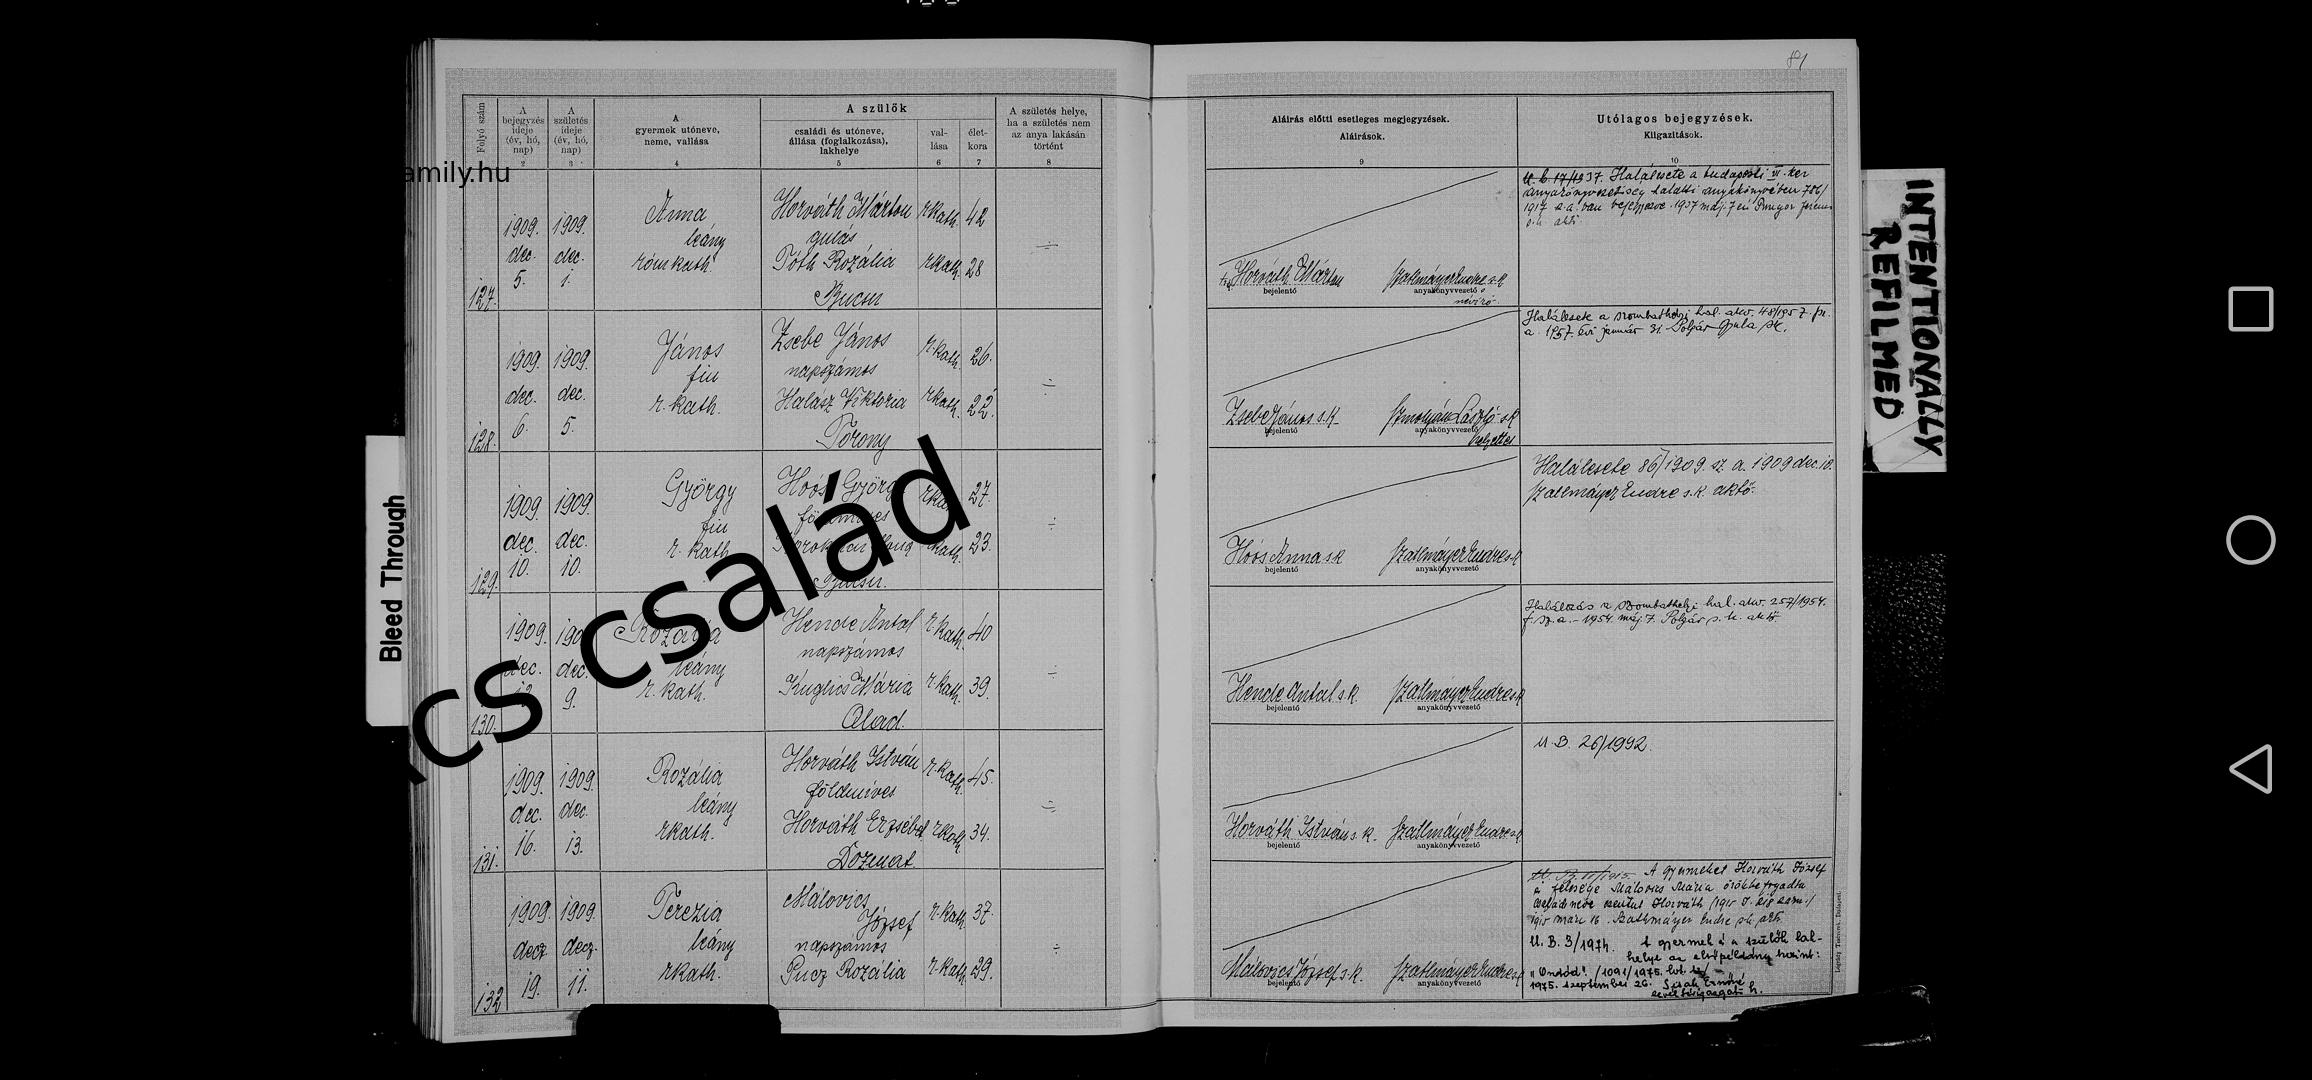 84
Folyó szám
A bejegyzés ideje (év, hó, nap)
A születés ideje (év, hó, nap)
A gyermek utóneve, neme, vallása
A szülők
családi és utóneve, állása (foglalkozása), lakhelye
val-lása
élet-kora
A születés helye, ha a születés nem az anya lakásán történt
Aláírás előtti esetleges megjegyzések.
Aláírások.
Utólagos bejegyzések.
Kiigazítások.
2 3 4 5 6 7 8 9 10
amily.hu
127.
1909. dec. 5.
1909. dec. 1.
Anna
leány
róm kath.
Horváth Márton r.kath. 42
gulás
Tóth Rozália r.kath. 28
Bucsu
Horváth Márton
bejelentő
Szatlmáyer Endre s.k.
anyakönyvvezető
1937. Halálesete a budapesti
128.
1909. dec. 6.
1909. dec. 5.
János
fiu
r. kath.
Zsebe János r.kath. 26.
napszámos
Halász Viktoria r.kath. 22.
Torony
Zsebe János s.k.
bejelentő
László s.k.
anyakönyvvezető
helyettes
Halálesete a szombathelyi hal. akv. 48/1957. f.
a. 1957. évi január 31. Polgár Gyula s.k.
129.
1909. dec. 10.
1909. dec. 10.
György
fiu
r. kath.
Hoós György 27.
23.
Hoós Anna s.k.
bejelentő
Szatlmáyer Endre s.k.
anyakönyvvezető
Halálesete 86/1909. sz. a. 1909 dec. 10.
Szatlmáyer Endre s.k. akvő.
130.
1909. dec.
dec. 9.
Rozália
leány
r. kath.
Hende Antal r.kath. 40
napszámos
Kuglics Mária r.kath. 39.
Olad.
Hende Antal s.k.
bejelentő
Szatlmáyer Endre s.k.
anyakönyvvezető
Halálozás a szombathelyi hal. akv. 257/1954.
f. sz. a. - 1954. máj. 7. Polgár s.k. akvő
131.
1909. dec. 16.
1909. dec. 13.
Rozália
leány
r.kath.
Horváth István r.kath. 45.
földmíves
Horváth Erzsébet r.kath. 34.
Dozmat
Horváth István s.k.
bejelentő
Szatlmáyer Endre s.k.
anyakönyvvezető
U.B. 26/1992.
132
1909. decz. 19.
1909. decz. 11.
Terezia
leány
r.kath.
Málovics József r.kath. 37.
napszámos
Pucz Rozália r.kath. 29.
Málovics József s.k.
bejelentő
Szatlmáyer Endre s.k.
anyakönyvvezető
A gyermeket Horváth József
és felesége Málovics Mária örökbefogadta
U.B. 3/1974. A gyermek és a szülők lak-
helye az első példány szerint:
1975. szeptember 26.
cs család
Bleed Through
INTENTIONALLY
REFILMED